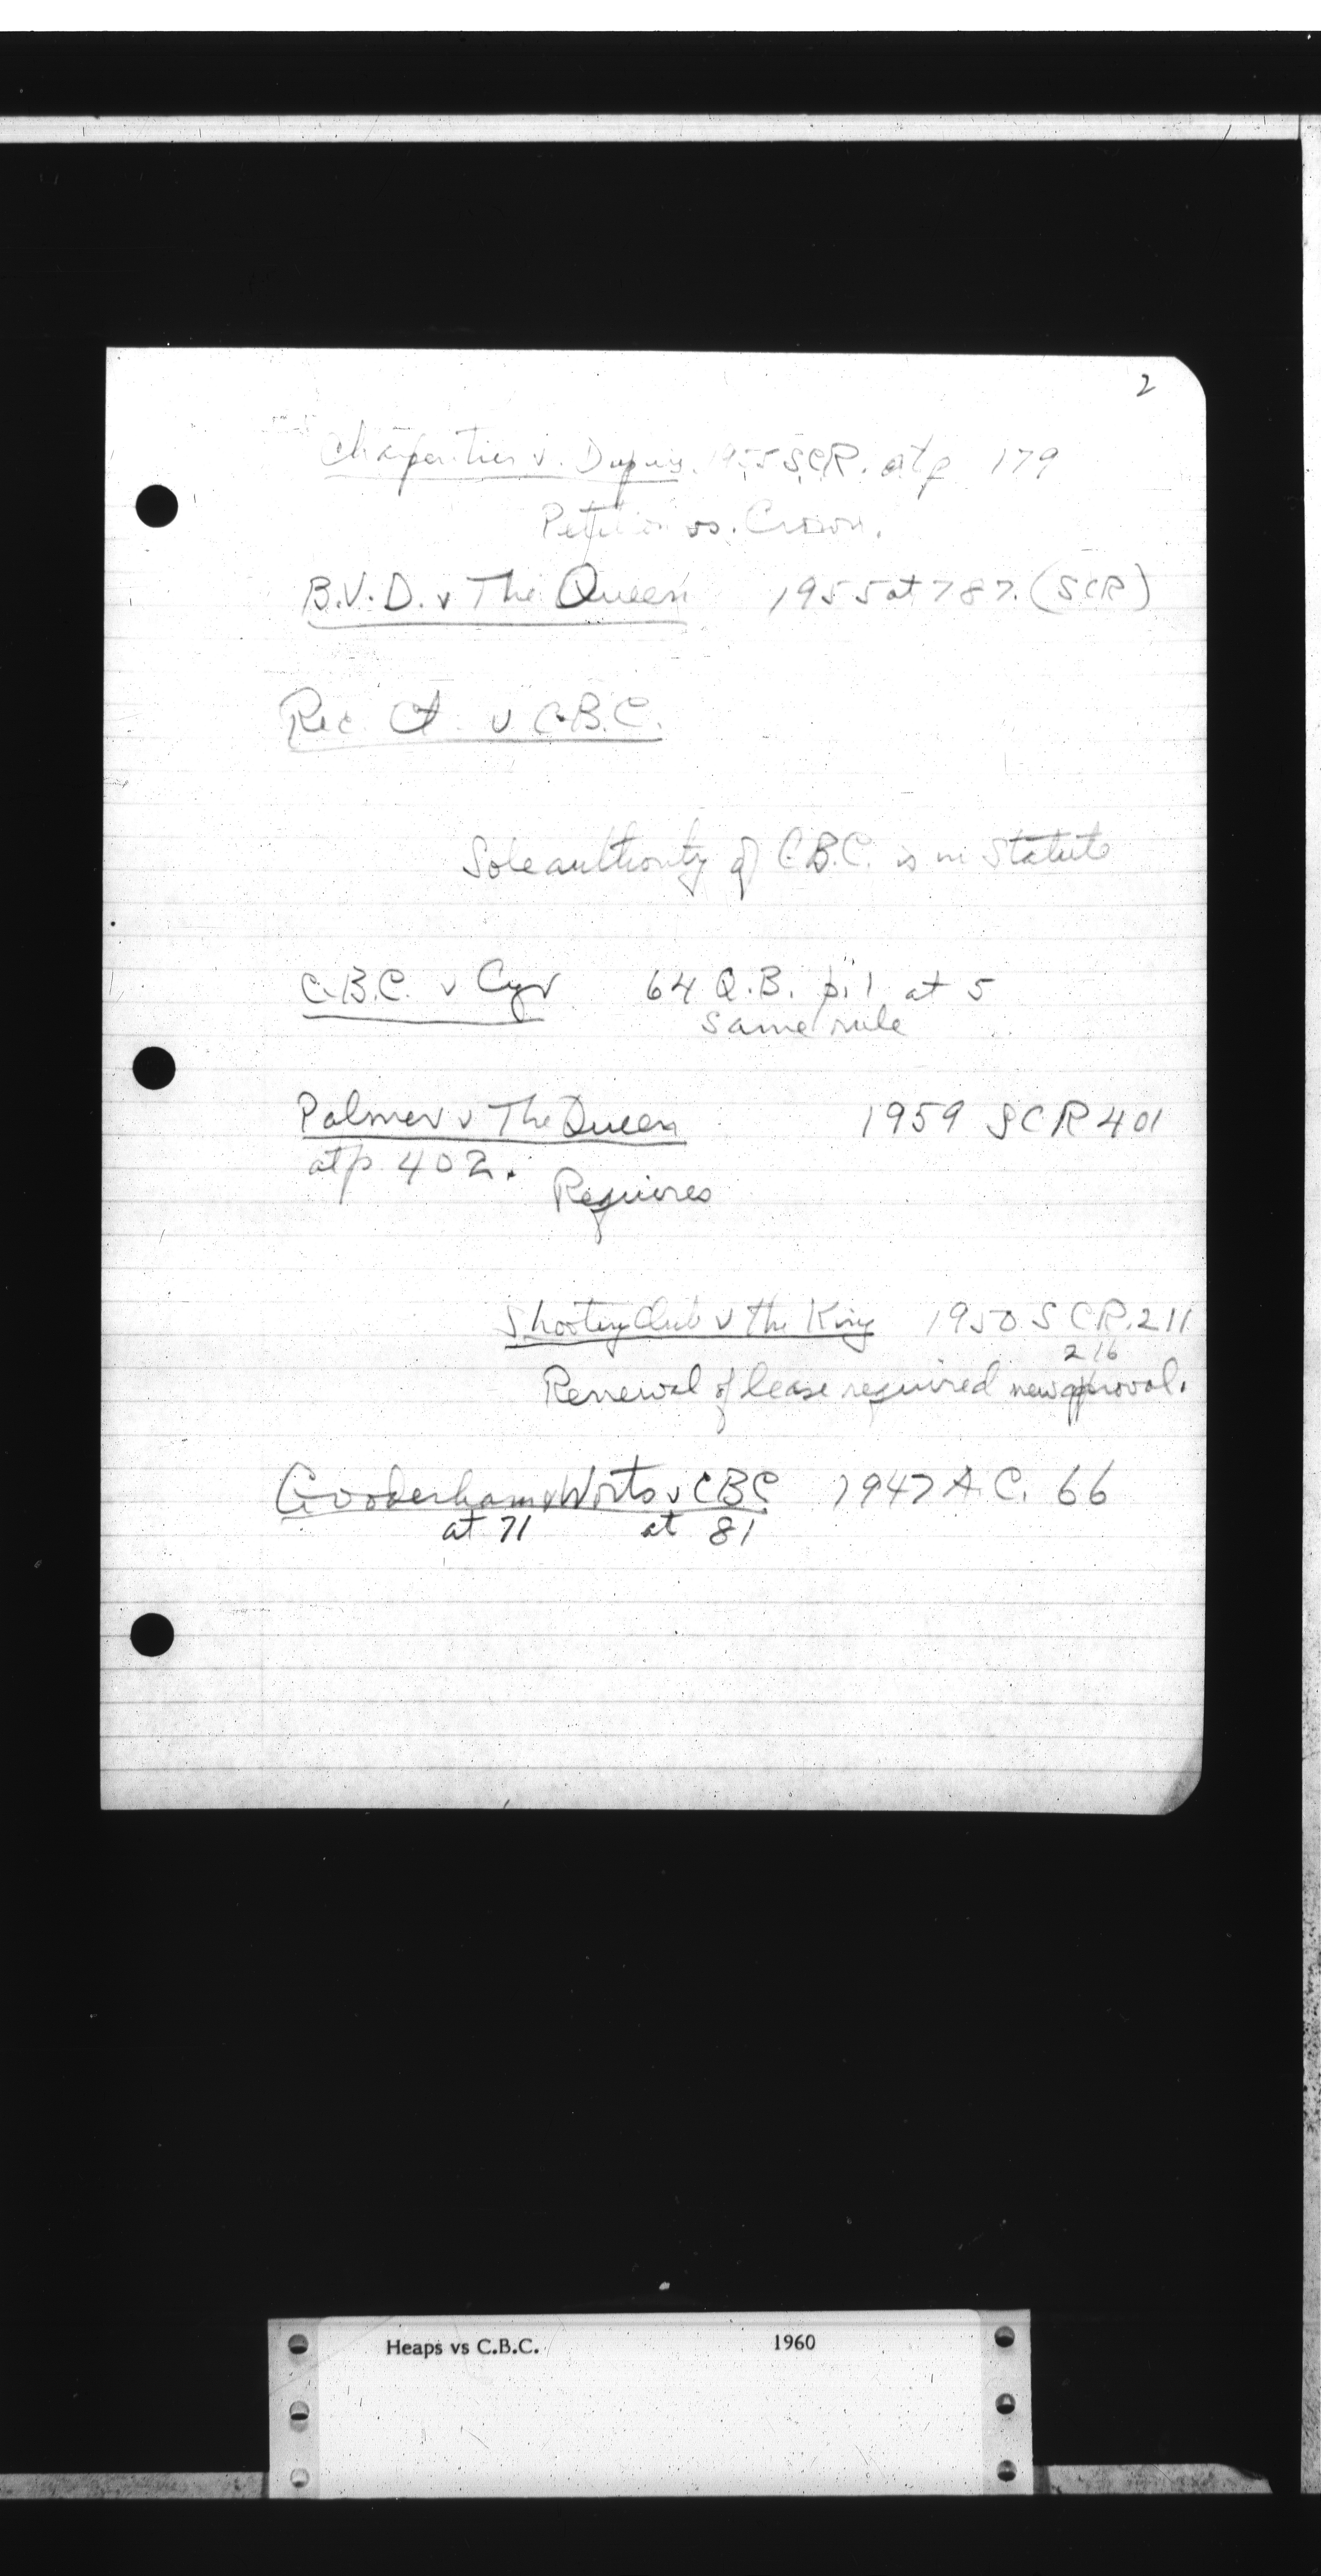 2
Charpentier v. Dupuis. 1955 S.C.R. at p 179
Petition vs. Crown.
B.V.D. v The Queen 1955 at 787. (SCR)
Rec. v C.B.C.
Sole authority of C.B.C. is in Statute
C.B.C. v Cyr 64 Q.B. p.1 at 5
Same rule
Palmer v The Queen 1959 SCR 401
at p. 402.
Requires
Shooting Club v the King 1950 SCR. 211
216
Renewal of lease required new approval.
Gooderham & Worts v CBC 1947 A.C. 66
at 71 at 81
Heaps vs C.B.C. 1960